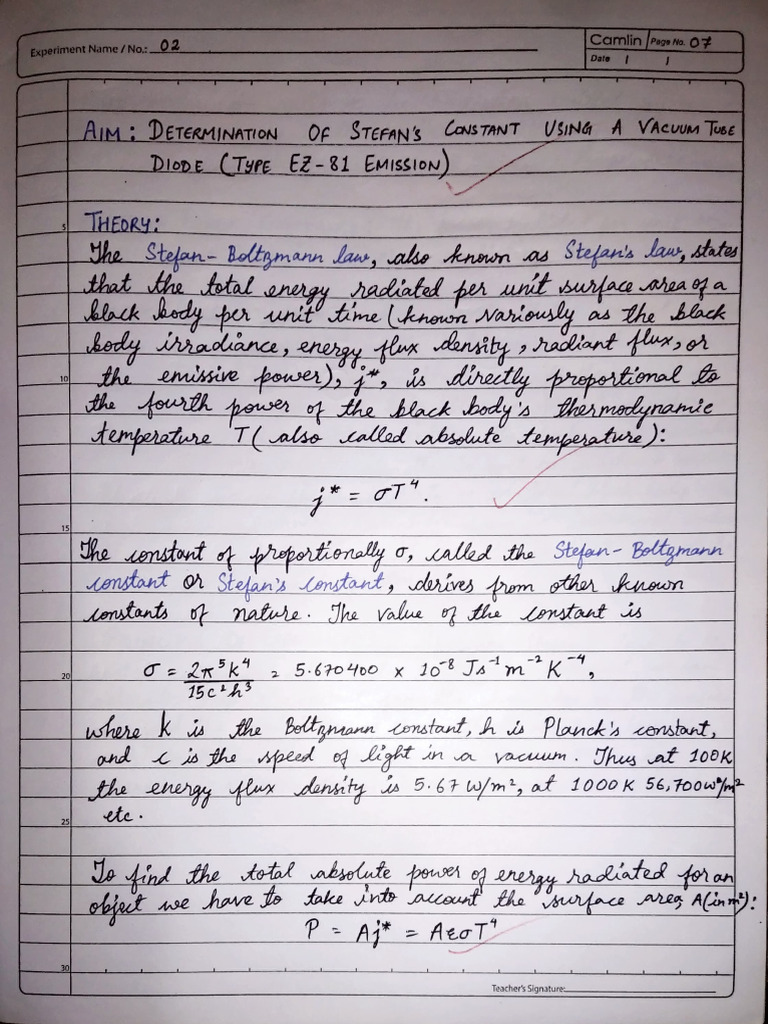 Experiment Name / No.: 02
Camlin Page No. 07
Date / /
AIM: DETERMINATION OF STEFAN'S CONSTANT USING A VACUUM TUBE
DIODE (TYPE EZ-81 EMISSION)
5 THEORY:
The Stefan-Boltzmann law, also known as Stefan's law, states
that the total energy radiated per unit surface area of a
black body per unit time (known variously as the black
body irradiance, energy flux density, radiant flux, or
10 the emissive power), j*, is directly proportional to
the fourth power of the black body's thermodynamic
temperature T (also called absolute temperature):
j* = σT⁴.
15
The constant of proportionally σ, called the Stefan-Boltzmann
constant or Stefan's constant, derives from other known
constants of nature. The value of the constant is
20 σ = 2π⁵k⁴/15c²h³ = 5.670400 × 10⁻⁸ Js⁻¹m⁻²K⁻⁴,
where k is the Boltzmann constant, h is Planck's constant,
and c is the speed of light in a vacuum. Thus at 100K
the energy flux density is 5.67 W/m², at 1000K 56,700W/m²
25 etc.
To find the total absolute power of energy radiated for an
object we have to take into account the surface area, A(in m²):
P = Aj* = AεσT⁴
30
Teacher's Signature: